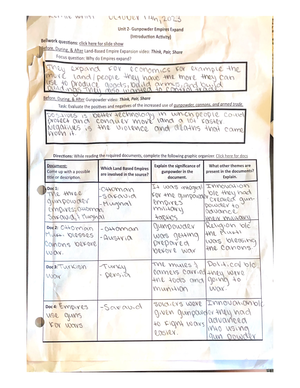 October 17th, 2023
Unit 2- Gunpowder Empires Expand
(Introduction Activity)
Bellwork questions: click here for slide show
Before, During, & After Land-Based Empire Expansion video: Think, Pair, Share
Focus question: Why do Empires expand?
They expand for economics for example the
more land/people they have the more they can
use to produce goods, build armies, and build
Before, During, & After Gunpowder video: Think, Pair, Share
Task: Evaluate the positives and negatives of the increased use of gunpowder, cannons, and armed trade.
positives is better technology in which people could
protect and conquer more land a lot faster
Negatives is the violence and deaths that came
from it.
Directions: While reading the required documents, complete the following graphic organizer. Click here for docs
Documents:
Come up with a possible
title or description.
Which Land Based Empires
are involved in the source?
Explain the significance of
gunpowder in the
document.
What other themes are
present in the documents?
Explain.
Doc 1:
The three
gunpowder
empires Ottoman
Safavid, Mughal
-Ottoman
-Safavid
-Mughal
It was
for the gun powder
empires
military
forces
Innovation
b/c they had
created gun
powder to
advance
their military
Doc 2: Ottoman
Mufti blesses
Canons before
war.
-Ottoman
-Austria
Gunpowder
was getting
prepared
before war.
Religion b/c
the Mufti
was blessing
the canons
Doc 3: Turkish
war
-Turkey
-Persia
The mules &
camels carried
the tools and
munition
Political b/c
they were
going to
war.
Doc 4: Empires
use guns
for wars
-Safavid
Soldiers were
given gunpowder
to fight wars
easier.
Innovation b/c
they had
advanced
into using
gun powder